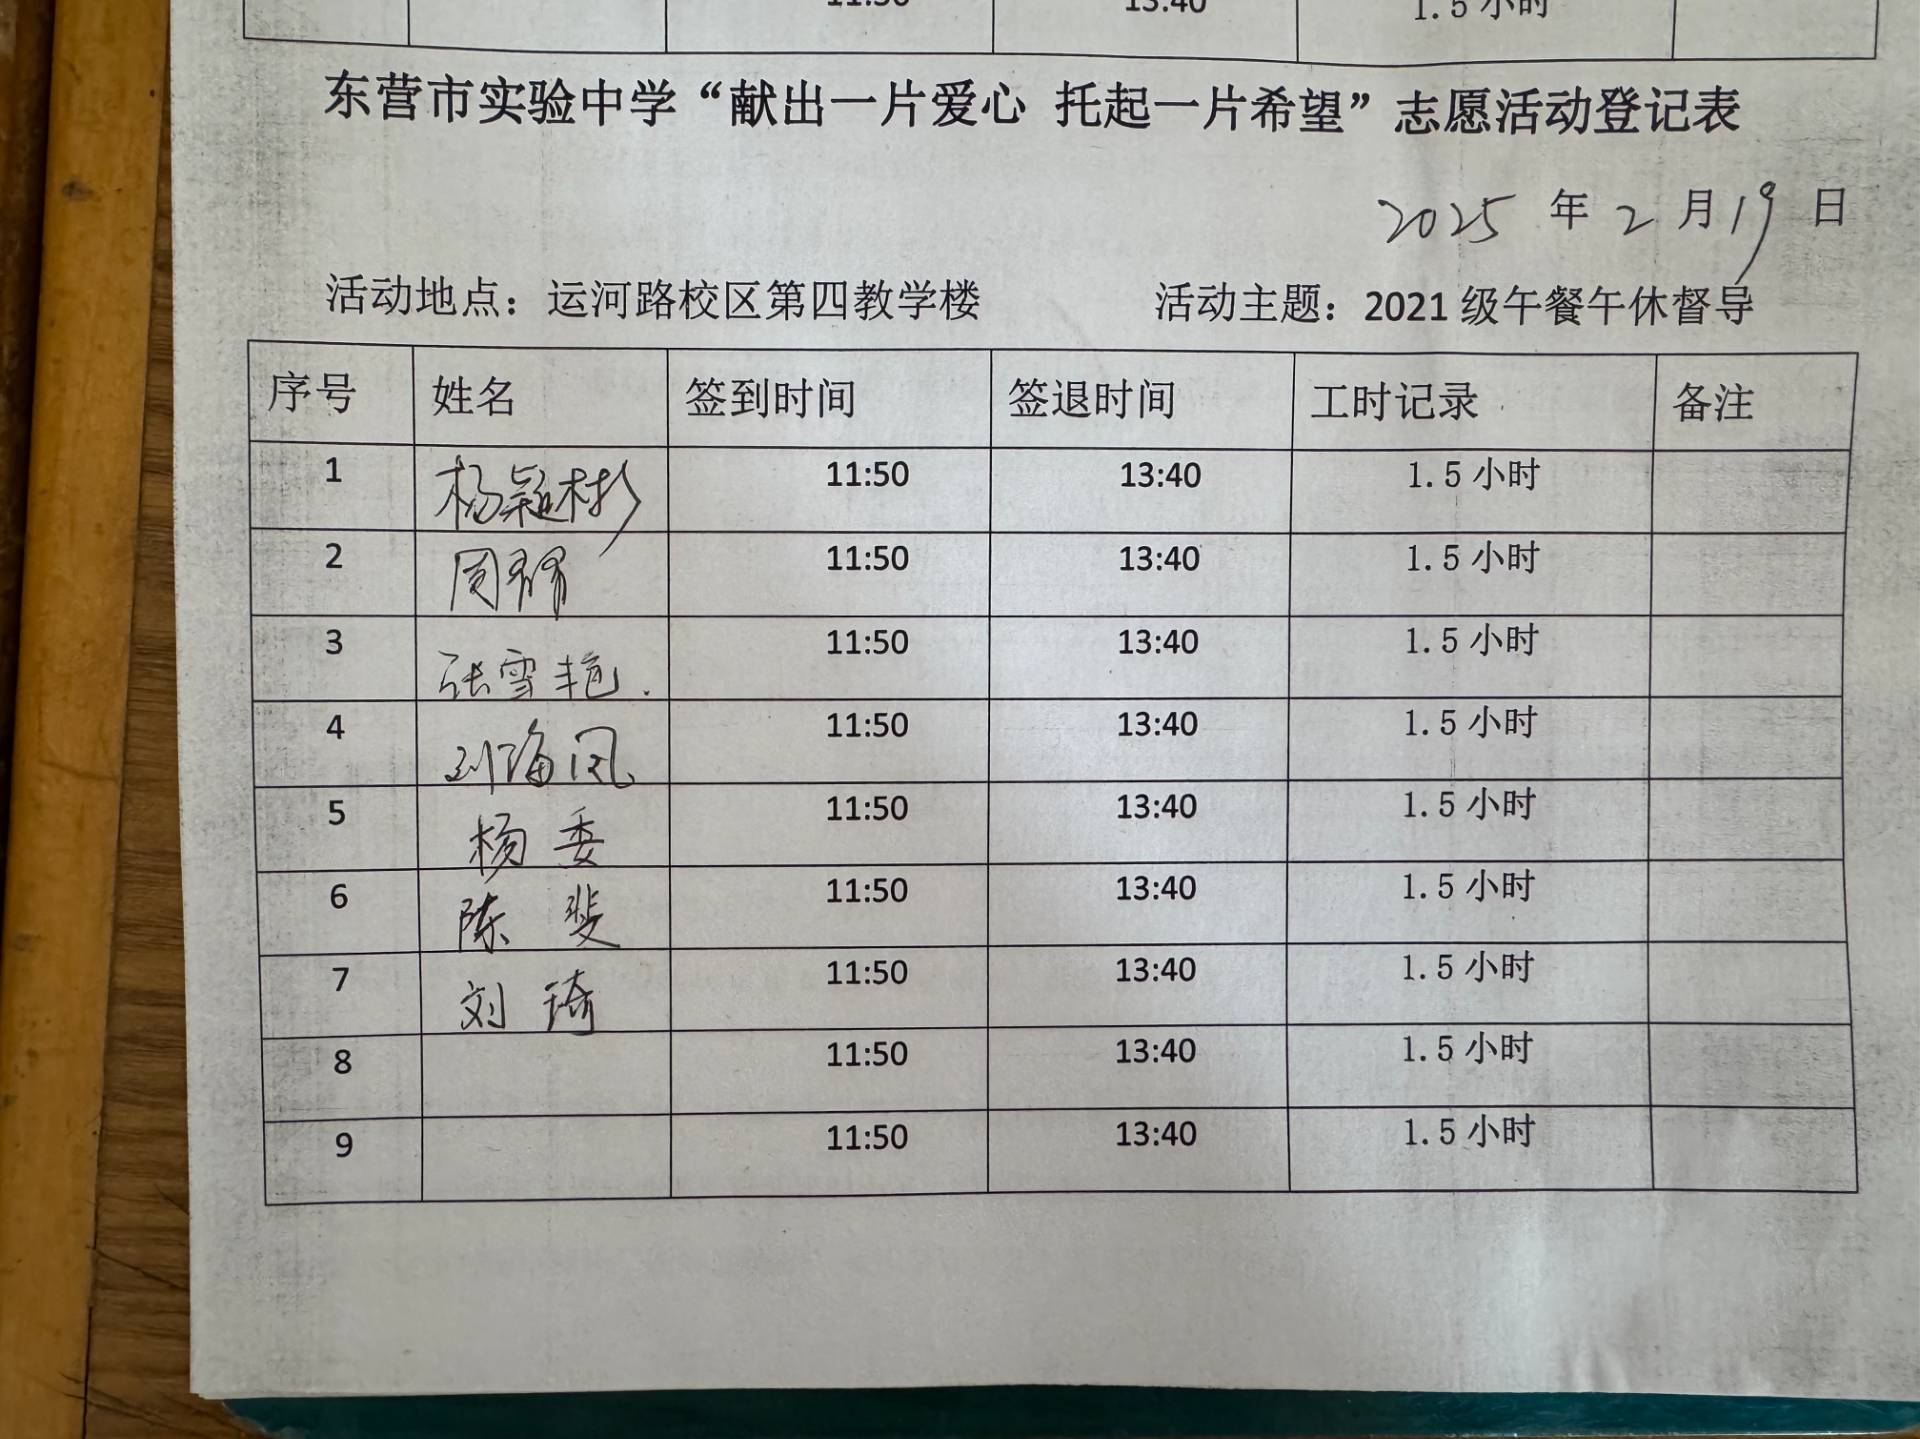 11:50 13:40 1.5 小时
东营市实验中学“献出一片爱心 托起一片希望”志愿活动登记表
2025 年 2 月 19 日
活动地点：运河路校区第四教学楼 活动主题：2021 级午餐午休督导
序号 姓名 签到时间 签退时间 工时记录 备注
1 杨颖彬 11:50 13:40 1.5 小时
2 周 11:50 13:40 1.5 小时
3 张雪艳. 11:50 13:40 1.5 小时
4 刘海凤 11:50 13:40 1.5 小时
5 杨委 11:50 13:40 1.5 小时
6 陈斐 11:50 13:40 1.5 小时
7 刘琦 11:50 13:40 1.5 小时
8 11:50 13:40 1.5 小时
9 11:50 13:40 1.5 小时